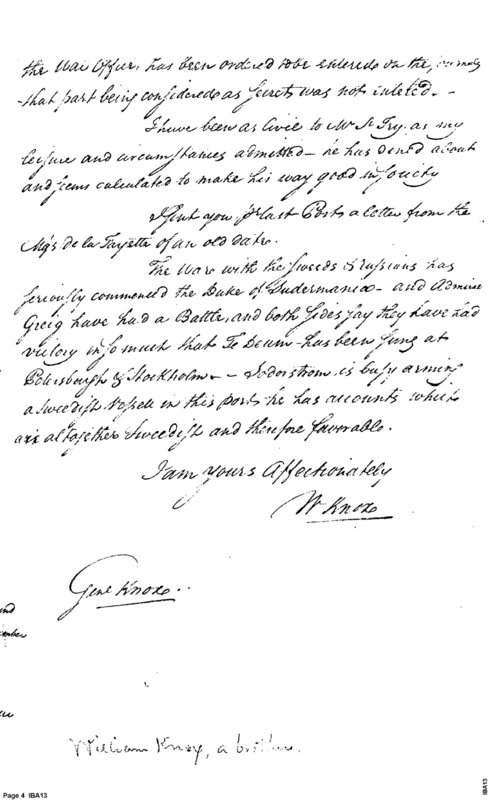 the War Office, has been ordered to be entered on the journals
-that part being considered as secrets was not entered. -
I have been as Civil to Mr St Try. as my
leisure and circumstances admitted - he has dined about
and seems calculated to make his way good in society
I sent you p last Posts a letter from the
Mqs. de la Fayette of an old date.
The War with the Sweeds & Russians has
seriously commenced the Duke of Sudermania - and Admiral
Greig have had a Battle, and both sides say they have had
victory in so much that Te Deum - has been sung at
Petersburgh & Stockholm - Soderstrom is busy arming
a Swedish Vessell in this port he has accounts which
are altogether Swedish and therefore favorable.
I am yours Affectionately
Wm Knox
Genl Knox.
William Knox, a brother.
Page 4 IBA13
IBA13